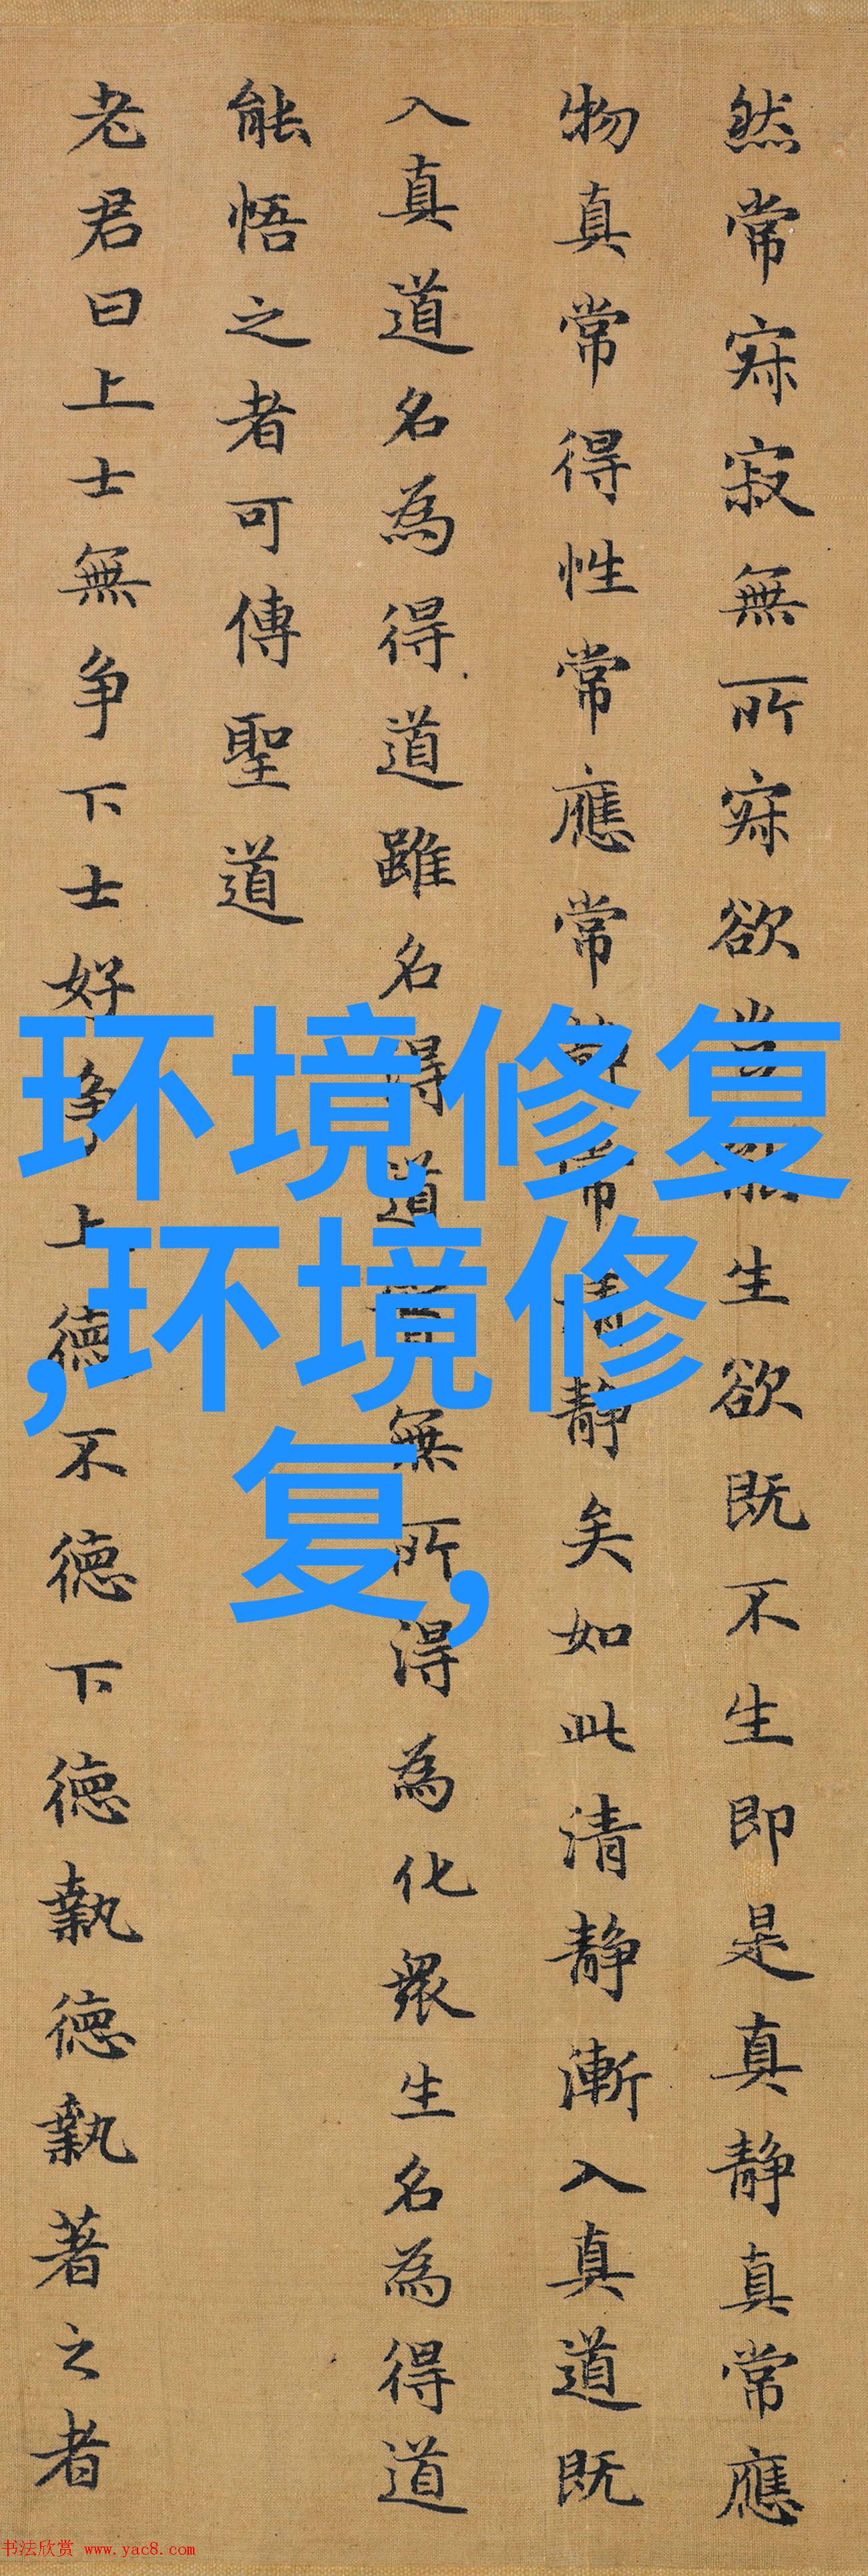 然常寂寂無所寂欲生欲既不生即是真静真常應
物真常得性常應常常静矣如此清静漸入真道既
入真道名為得道雖名得道無所得為化衆生名為得道
能悟之者可傳聖道
老君曰上士無争下士好争上德不德下德執德執著之者
环境修复
,环境修
复,
书法欣赏 www.yac8.com